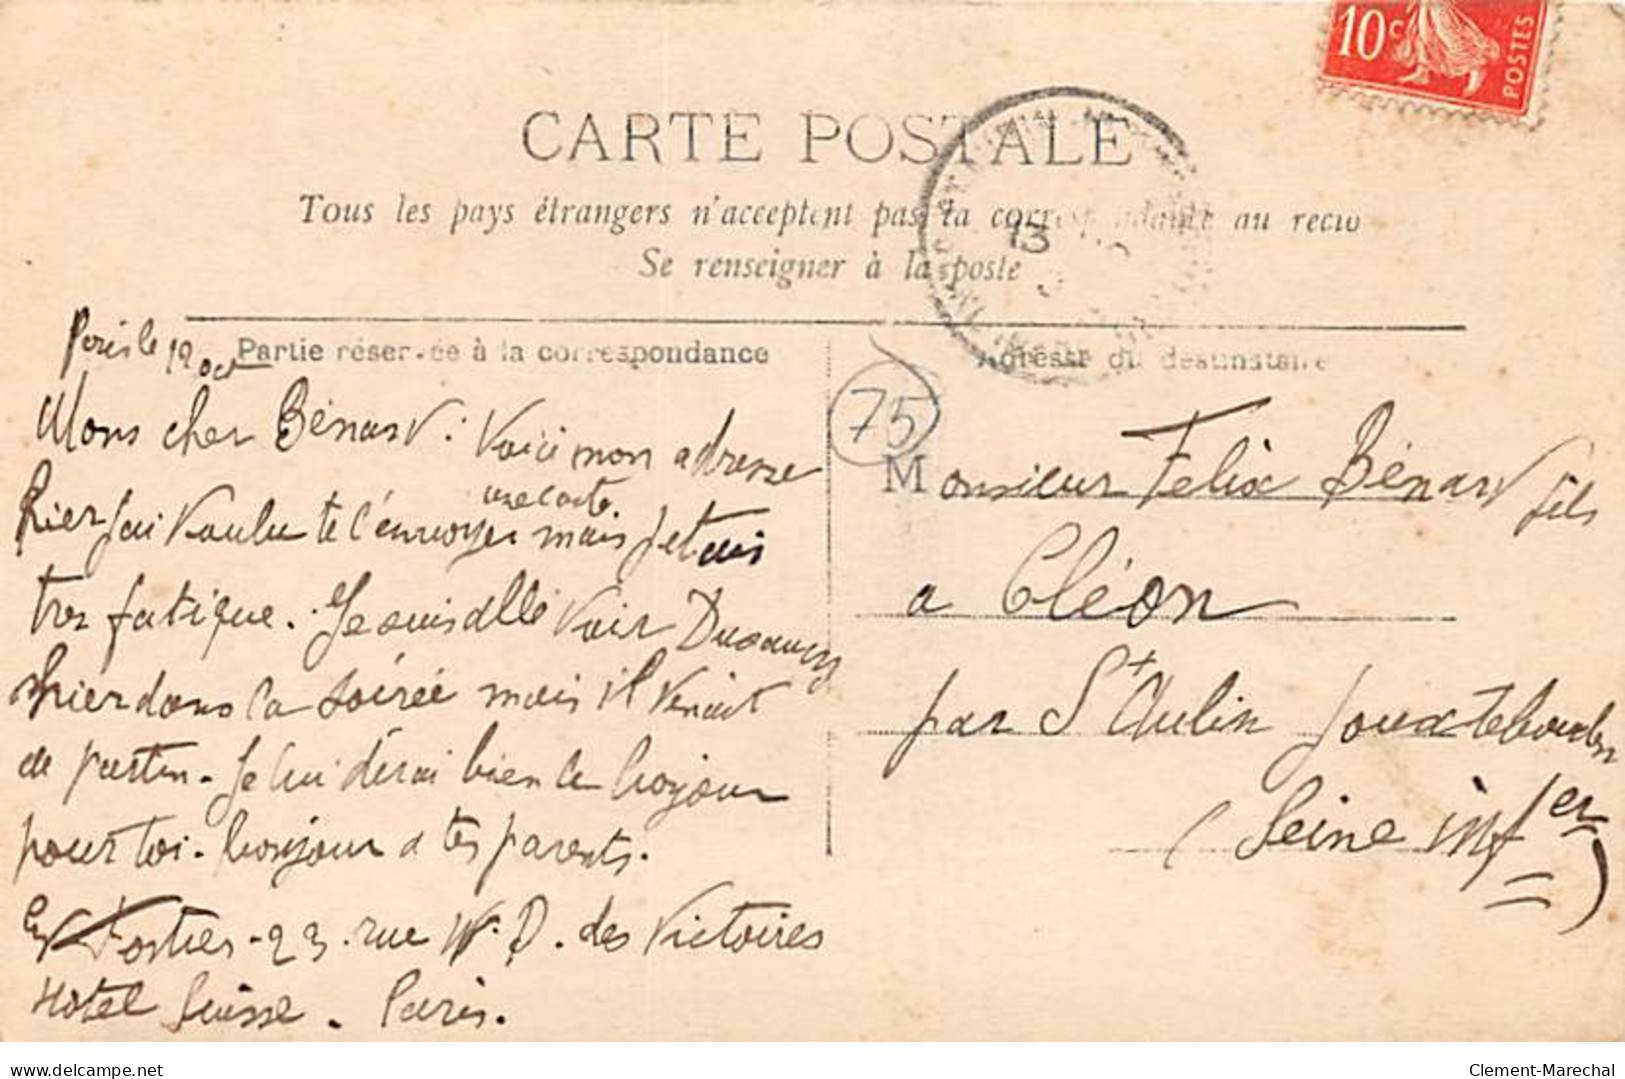 10c
POSTES
CARTE POSTALE
Tous les pays étrangers n'acceptent pas la correspondance au recto
Se renseigner à la poste
13
Partie réservée à la correspondance
Adresse du destinataire
75
Paris le 12 oct
Mons cher Bénard. Voici mon adresse
hier jai voulu te l'envoyer une carte mais jetais
tres fatigue. Je suis allé voir
hier dans la soirée mais il venait
de partir. Je lui dirai bien le bonjour
pour toi. bonjour a tes parents.
Fortier - 23. rue N. D. des Victoires
Hotel Suisse. Paris.
Monsieur Felix Bénard fils
a Cléon
par St Aubin Jouxteboulle
(Seine infer)
www.delcampe.net
Clement-Marechal